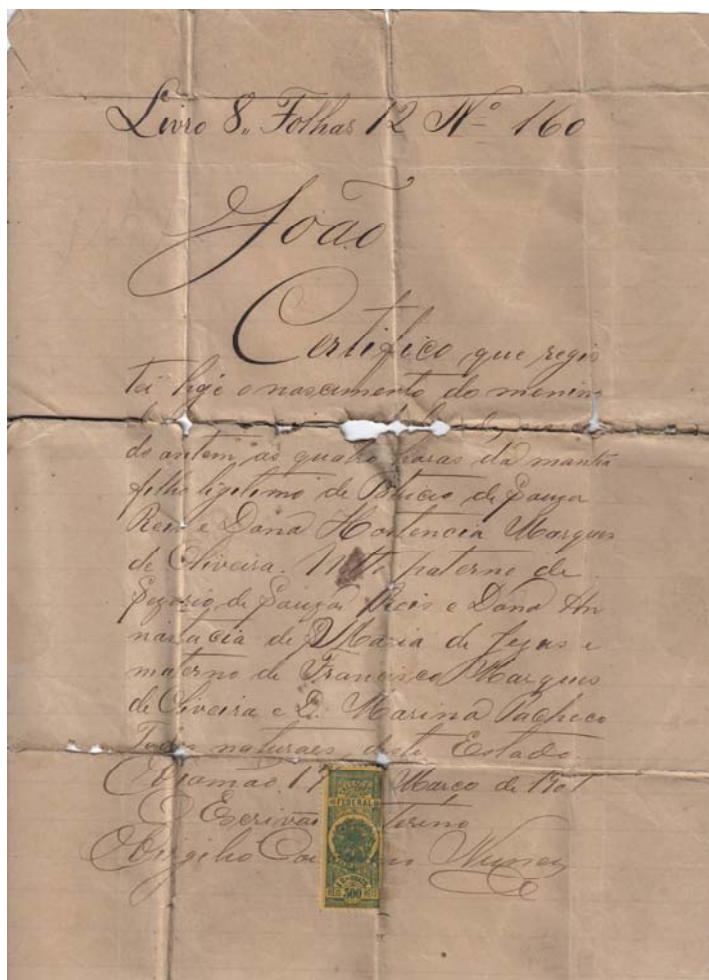 Livro 8,, Folhas 12 Nº 160
João
Certifico, que regis
tei hoje o nascimento do menino
do ontem as quatro horas da manhã
filho ligitimo de de Souza
Reis e Dona Hortencia Marques
de Oliveira. Netto paterno de
de Souza Reis e Dona An
nastacia de Maria de Jezus e
materno de Francisco Marques
de Oliveira e D. Marina Pacheco
Todos naturaes deste Estado
Viamão 17 Março de 1901
O Escrivão
Virgilio Nunes
FEDERAL
REIS 300 REIS